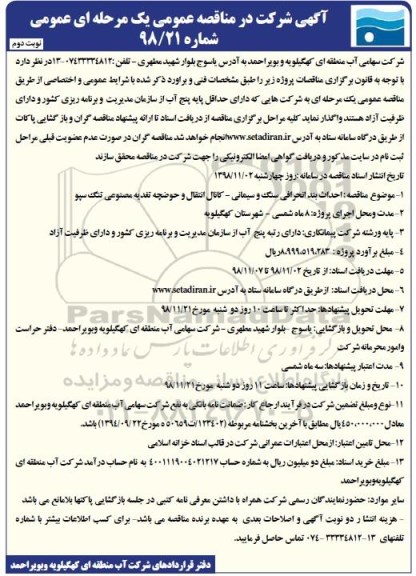 آگهی شرکت در مناقصه عمومی یک مرحله ای عمومی
شماره ۹۸/۲۱
نوبت دوم
شرکت سهامی آب منطقه ای کهگیلویه و بویراحمد به آدرس یاسوج بلوار شهید مطهری - تلفن: ۱۳-۰۷۴۳۳۳۳۴۸۱۲ در نظر دارد
با توجه به قانون برگزاری مناقصات پروژه زیر را طبق مشخصات فنی و براورد ذکر شده با شرایط عمومی و اختصاصی از طریق
مناقصه عمومی یک مرحله ای به شرکت هایی که دارای حداقل پایه پنج آب از سازمان مدیریت و برنامه ریزی کشور و دارای
ظرفیت آزاد هستند واگذار نماید کلیه مراحل برگزاری مناقصه از دریافت اسناد تا ارائه پیشنهاد مناقصه گران و بازگشایی پاکات
از طریق درگاه سامانه ستاد به آدرس www.setadiran.ir انجام خواهد شد مناقصه گران در صورت عدم عضویت قبلی مراحل
ثبت نام در سایت مذکور و دریافت گواهی امضا الکترونیکی را جهت شرکت در مناقصه محقق سازند
تاریخ انتشار اسناد مناقصه در سامانه : روز چهارشنبه ۱۳۹۸/۱۱/۰۲
۱- موضوع مناقصه : احداث بند انحرافی سنگ و سیمانی - کانال انتقال و حوضچه تغذیه مصنوعی تنگ سپو
۲- مدت و محل اجرای پروژه: ۸ ماه شمسی - شهرستان کهگیلویه
۳- پایه ورشته شرکت پیمانکاری: دارای رتبه پنج آب از سازمان مدیریت و برنامه ریزی کشور و دارای ظرفیت آزاد
۴- مبلغ برآورد پروژه : ۸،۹۹۹،۵۱۹،۲۸۳ ریال
۵- مهلت دریافت اسناد: از تاریخ ۹۸/۱۱/۰۲ تا ۹۸/۱۱/۰۷
۶- محل دریافت اسناد: از طریق درگاه سامانه ستاد به آدرس www.setadiran.ir
۷- مهلت تحویل پیشنهادها: حداکثر تا ساعت ۱۰ روز دو شنبه مورخ ۹۸/۱۱/۲۱
۸- محل تحویل و بازگشایی: یاسوج - بلوار شهید مطهری - شرکت سهامی آب منطقه ای کهگیلویه وبویراحمد- دفتر حراست
وامور محرمانه شرکت
۹- مدت اعتبار پیشنهادها: سه ماه شمسی
۱۰- تاریخ و زمان بازگشایی پیشنهادها: ساعت ۱۱ روز دو شنبه مورخ ۹۸/۱۱/۲۱
۱۱- نوع ومبلغ تضمین شرکت در فرآیند ارجاع کار: ضمانت نامه بانکی به نفع شرکت سهامی آب منطقه ای کهگیلویه وبویراحمد
معادل ۴۵۰،۰۰۰،۰۰۰ ریال مطابق با آخرین بخشنامه مربوطه (۱۲۳۴۰۲/ت۵۰۶۵۹ه مورخ ۱۳۹۴/۰۹/۲۲) می باشد.
۱۲- محل تامین اعتبار: از محل اعتبارات عمرانی شرکت در قالب اسناد خزانه اسلامی
۱۳- مبلغ خرید اسناد: مبلغ دو میلیون ریال به شماره حساب ۴۰۰۱۱۱۹۰۰۴۰۲۱۲۱۷ به نام حساب درآمد شرکت آب منطقه ای
کهگیلویه وبویراحمد
سایر موارد: حضورنمایندگان رسمی شرکت همراه با داشتن معرفی نامه کتبی در جلسه بازگشایی پاکتها بلامانع می باشد
- هزینه انتشار دو نوبت آگهی و اصلاحات بعدی به عهده برنده مناقصه می باشد- برای کسب اطلاعات بیشتر با شماره
تلفنهای ۱۳-۳۳۳۳۴۸۱۲-۰۷۴ تماس حاصل فرمایید.
دفتر قراردادهای شرکت آب منطقه ای کهگیلویه وبویراحمد